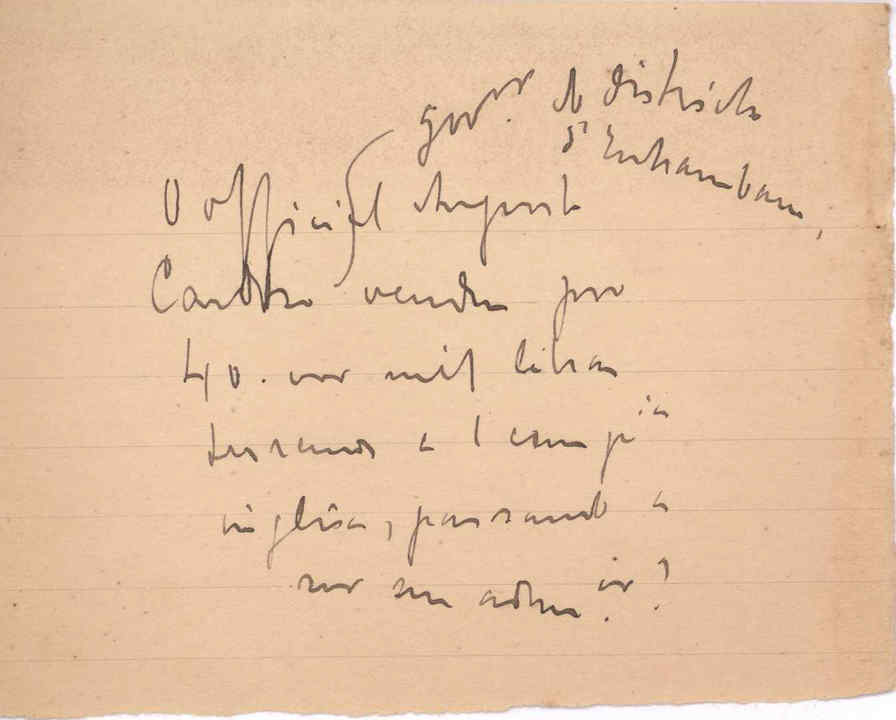 gov.or do districto
d'Inhambane,
O official Augusto
Cardoso vendeu por
40.000 mil libras
terrenos a 1 comp.ia
inglesa, passando a
ser seu adm.or?